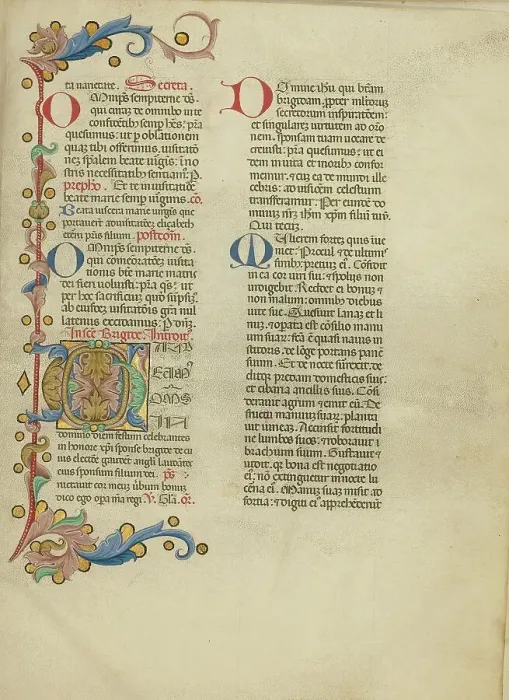 ta nanetate. Secreta.
Omnips sempiterne ds.
qui
consistis semp
quesumus: ut p oblationem
quas tibi offerimus, visitatio
nes spalem beate virginis: i no
stris necessitatib sentiam. P.
prephio. Et te in visitatione
beate marie semp virginis. co.
Beata viscera marie virgis que
portaverunt
etni patris filium. postcom.
Omnips sempiterne ds.
qui comemorates visita
tionis bte marie matris
dei filii voluisti: pra qs: ut
per hoc sacrificium quod supsim.
ab eiusdem visitatois gra nul
latenus excidamus. P dnm.
In fes. Brigite. Introit.
GAUDEAMUS
OMS
IN
domino diem festum celebrantes
in honore xpi sponse brigite de cu
ius electione gaudet angli laudate
eius sponsum filium dei. ps.
Eructavit cor meum verbum bonum
dico ego opa mea regi. V. Gla. or.
Domine ihu qui beam
brigidam, propter multorum
secretorum inspiratorem:
et singularem virtutem ad oro
nem. sponsam tuam vocare de
crevisti: pra quesumus: ut ei
dem in vita et moribus confor
memur. et cum ea de mundi ille
cebris: ad visionem celestium
transferamur. Per eundem do
minum nrm ihm xpm filium tuum.
Qui tecum.
Mulierem fortem quis inve
niet: Procul et de ultimis
finibus precium ei. Confidit
in ea cor viri sui: et spolijs non
indigebit. Reddet ei bonum et
non malum: omnibus diebus
vite sue. Quesivit lanam et li
num: et opata est consilio manu
um suarum: fca e quasi navis in
stitoris: de longe portans pane
suum. Et de nocte surrexit: de
ditque predam domesticis suis:
et cibaria ancillis suis. Consi
deravit agrum et emit eum. De
fructu manuum suarum: planta
vit vineam. Accinxit fortitudi
ne lumbos suos: et roboravit
brachium suum. Gustavit et
vidit: quia bona est negotiatio
ei: non extinguetur in nocte lu
cerna ei. Manum suam misit ad
fortia: et digiti ei apprehenderunt